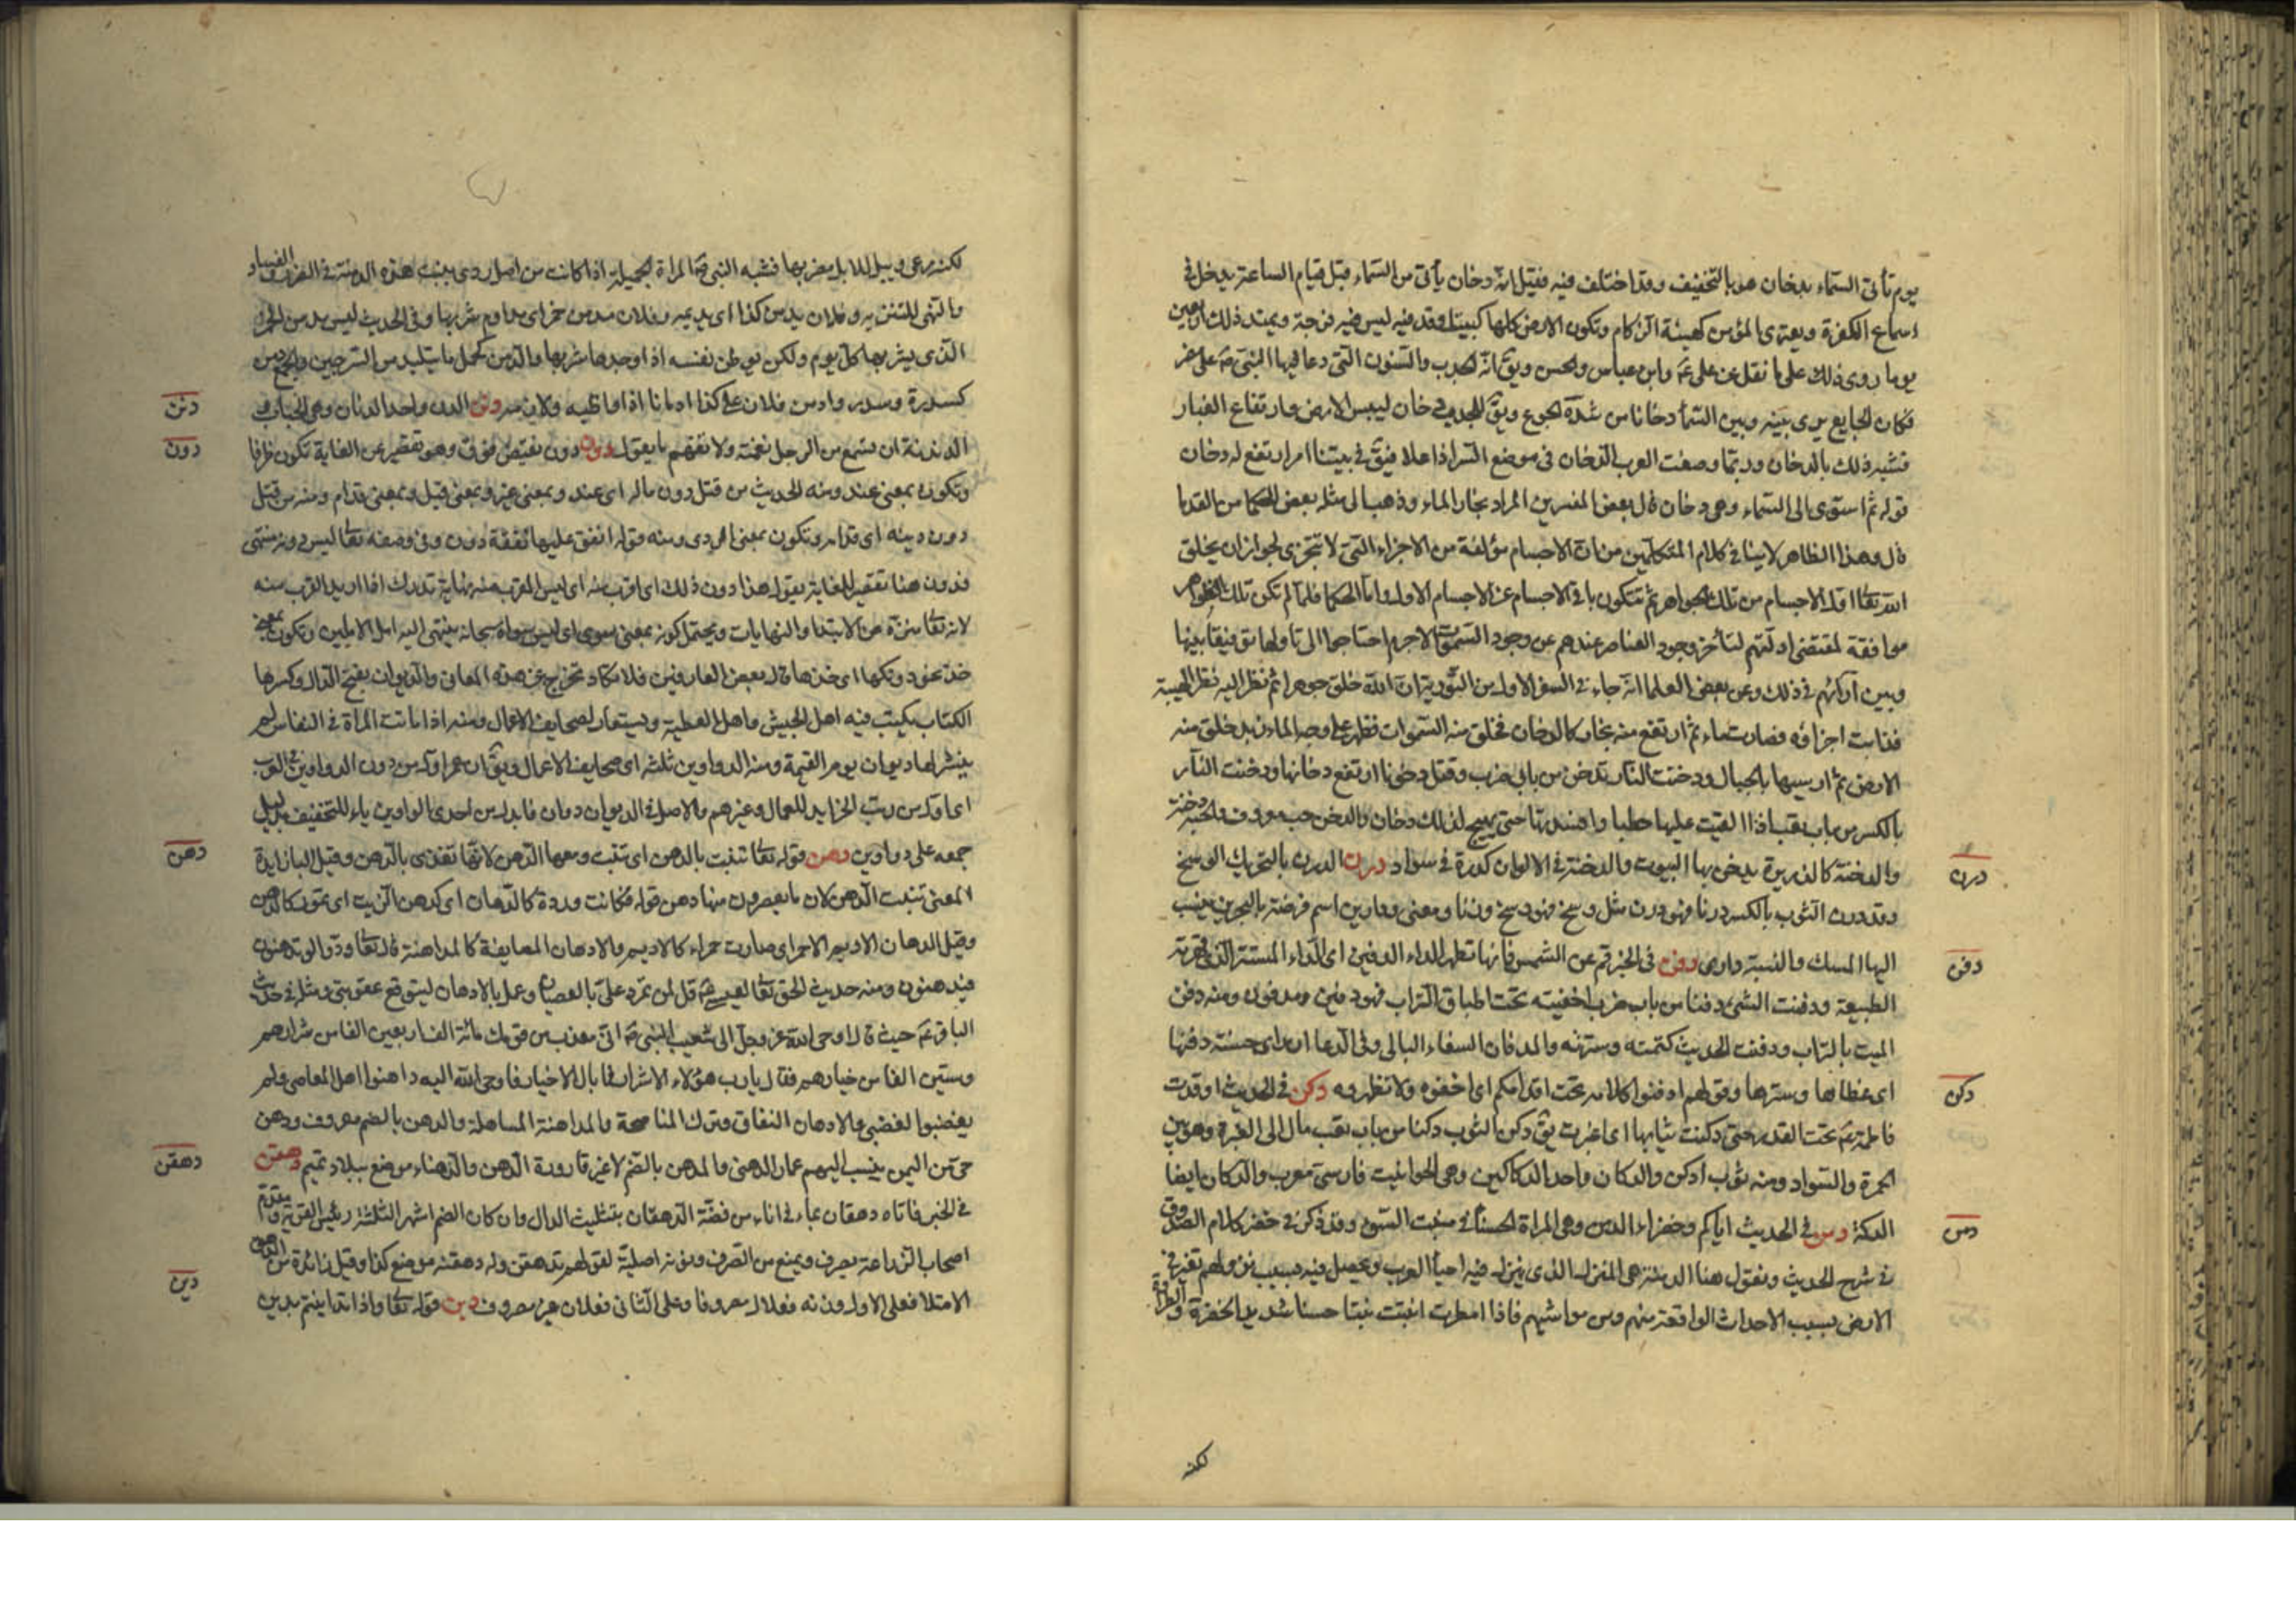 يوم تأتى السماء بدخان هو بالتخفيف وقد اختلف فيه فقيل انه دخان يأتى من السماء قبل قيام الساعة يدخل فى
اسماع الكفرة ويعترى المؤمن كهيئة الزكام وتكون الارض كلها كبيت اوقد فيه ليس فيه فرجة ويمتد ذلك اربعين
يوما روى ذلك على ما نقل عن على ع وابن عباس والحسن ويق انه لجدب والسنون التى دعا فيها النبى ص على مضر
فكان الجايع يرى بينه وبين السماء دخانا من شدة الجوع ويق للجدب دخان ليبس الارض وارتفاع الغبار
فشبه ذلك بالدخان وربما وضعت العرب الدخان فى موضع الشر اذا علا فيق فى بيتنا امر ارتفع له دخان
قوله ثم استوى الى السماء وهى دخان قال بعض المفسرين المراد بخار الماء وذهب الى مثله بعض الحكما من القدما
قال وهذا الظاهر لا ينافى كلام المتكلمين من ان الاجسام مؤلفة من الاجزاء التى لا تتجزى لجواز ان يخلق
الله تعا اول الاجسام من تلك الجواهر ثم تتكون باقى الاجسام عن الاجسام الاول واما الحكما فلما لم تكن تلك الظواهر
موافقة لمقتضى ادلتهم لتأخر وجود العناصر عندهم عن وجود السموات لاجرم احتاجوا الى تأولها توفيقا بينها
وبين آرائهم فى ذلك وعن بعض العلما انه جاء فى السفر الاول من التورية ان الله خلق جوهرا ثم نظر اليه نظر الهيبة
فذابت اجزاؤه فصارت ماء ثم ارتفع منه بخار كالدخان فخلق منه السموات فظهر على وجه الماء زبد خلق منه
الارض ثم ارسيها بالجبال ودخنت النار تدخن من بابى ضرب وقتل دخونا ارتفع دخانها ودخنت النار
بالكسر من باب تعب اذا القيت عليها حطبا وافسدتها حتى يهيج لذلك دخان والدخن حب معروف والحبة دخنة
والدخنة كالذريرة يدخن بها البيوت والدخنة فى الالوان كدرة فى سواد درن الدرن بالتحريك الوسخ
وقد درن الثوب بالكسر درنا فهو درن مثل وسخ فهو وسخ وزنا ومعنى ودارين اسم فرضة بالبحرين ينسب
اليها المسك والنسبة دارى دفن فى الخبر قم عن الشمس فانها تظهر الداء الدفين اى الداء المستتر الذى قهرته
الطبيعة ودفنت الشئ دفنا من باب ضرب اخفيته تحت اطباق التراب فهو دفين ومدفون ومنه دفن
الميت بالتراب ودفنت الحديث كتمته وسترته والمدفان السقاء البالى وفى الدعا ان راى حسنة دفنها
اى غطاها وسترها وقولهم ادفنوا كلامه تحت اقدامكم اى اخفوه ولا تظهروه دكن فى الحديث اوقدت
فاطمة ع تحت القدر حتى دكنت ثيابها اى اغبرت يق دكن الثوب دكنا من باب تعب مال الى الغبرة وهو بين
الحمرة والسواد ومنه ثوب ادكن والدكان واحد الدكاكين وهى الحوانيت فارسى معرب والدكان ايضا
الدكة دمن فى الحديث اياكم وخضراء الدمن وهى المراة الحسناء فى منبت السوء وقد ذكر فى خضر كلام الصدوق
فى شرح الحديث ونقول هنا الدمنة هى المنزل الذى ينزل فيه احياء العرب ويحصل فيه بسبب نزولهم تغير فى
الارض بسبب الاحداث الواقعة منهم ومن مواشيهم فاذا امطرت انبتت نبتا حسنا شديد الخضرة والطراوة
درن
دفن
دكن
دمن
لكنه
لكنه مرعى وبيل للابل مضر بها فشبه النبى ص المراة الجميلة اذا كانت من اصل ردى بنبت هذه الدمنة فى الضرر والفساد
الذى يشربها كل يوم ولكن يوطن نفسه اذا وجدها شربها والدمن كحمل ما يتلبد من السرجين والجمع دمن
كسدرة وسدر وادمن فلان على كذا ادمانا اذا واظبه ولازمه دنن الدن واحد الدنان وهى الحباب و
الدندنة ان تسمع من الرجل نغمة ولا تفهم ما يقول دون دون نقيض فوق وهو تقصير عن الغاية تكون ظرفا
وتكون بمعنى عند ومنه الحديث من قتل دون ماله اى عند وبمعنى غير وبمعنى قبل وبمعنى قدام ومنه من قتل
دون دينه اى قدامه وتكون بمعنى الردى ومنه قوله انفق عليها نفقة دون وفى وصفه تعا ليس دونه منتهى
فدون هنا تقصير للغاية يقول هذا دون ذلك اى اقرب منه اى ليس القرب منه نهاية تدرك اذا اريد القرب منه
لانه تعا منزه عن الابتدا والنهايات ويحتمل كونه بمعنى سوى اى ليس سواه سبحانه ينتهى اليه امل الاملين وتكون بمعنى
خذ نحو دونكها اى خذها قال بعض العارفين فلا تكاد تخرج عن هذه المعانى والديوان بفتح الدال وكسرها
الكتاب يكتب فيه اهل الجيش واهل العطية ويستعار لصحايف الاعمال ومنه اذا ماتت المراة فى النفاس لم
ينشر لها ديوان يوم القيمة ومنه الدواوين ثلثة اى صحايف الاعمال ويق ان عمر اول من دون الدواوين فى العرب
اى اول من رتب الجرايد للعمال وغيرهم والاصل فى الديوان دوان فابدل من احدى الواوين ياء للتخفيف بدليل
جمعه على دواوين دهن قوله تعا تنبت بالدهن اى تنبت ومعها الدهن لانها تغذى بالدهن وقيل البا زايدة
المعنى تنبت الدهن لان ما يعصرون منها دهن قوله فكانت وردة كالدهان اى كدهن الزيت اى تمور كالدهن
وقيل الدهان الاديم الاحمر اى صارت حمراء كالاديم والادهان المصانعة كالمداهنة قال تعا ودوا لو تدهن
فيدهنون ومنه حديث الحق تعا لعيسى ع قل لمن تمرد على بالعصيان وعمل بالادهان ليتوقع عقوبتى ومثله فى حديث
الباقر ع حيث قال اوحى الله عز وجل الى شعيب النبى ع انى معذب من قومك مائة الف اربعين الفا من شرارهم
وستين الفا من خيارهم فقال يارب هؤلاء الاشرار فما بال الاخيار فاوحى الله اليه داهنوا اهل المعاصى ولم
يغضبوا لغضبى والادهان النفاق وترك المناصحة والمداهنة المساهلة والدهن بالضم معروف ودهن
حى من اليمن ينسب اليهم عمار الدهنى والمدهن بالضم لا غير قارورة الدهن والدهناء موضع ببلاد تميم دهقن
فى الخبر فاتاه دهقان بماء فى اناء من فضة الدهقان بتثليث الدال وان كان الضم اشهر الثلثة رئيس القرية ومقدم
اصحاب الزراعة يصرف ويمنع من الصرف ونونه اصلية لقولهم تدهقن وله دهقنة موضع كذا وقيل زائدة من الدهق
الامتلا فعلى الاول وزنه فعلال معروفا وعلى الثانى فعلان غير معروف دين قوله تعا واذا تداينتم بدين
دنن
دون
دهن
دهقن
دين